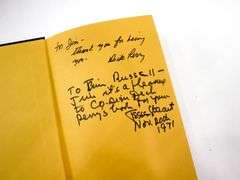 To Jim -
thank you for being
you. Dick Perry
To Jim Russell -
Jim it's a pleasure
to co-sign Dick
Perry's book for you
Jesse Stuart
Nov. 2nd
1971